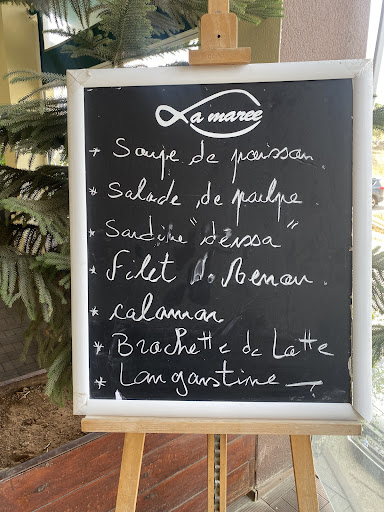 La maree
* Soupe de poisson.
* Salade de poulpe.
* Sardine "derssa"
* Filet de Merou.
* calamar
* Brochette de Lotte
* Langoustine